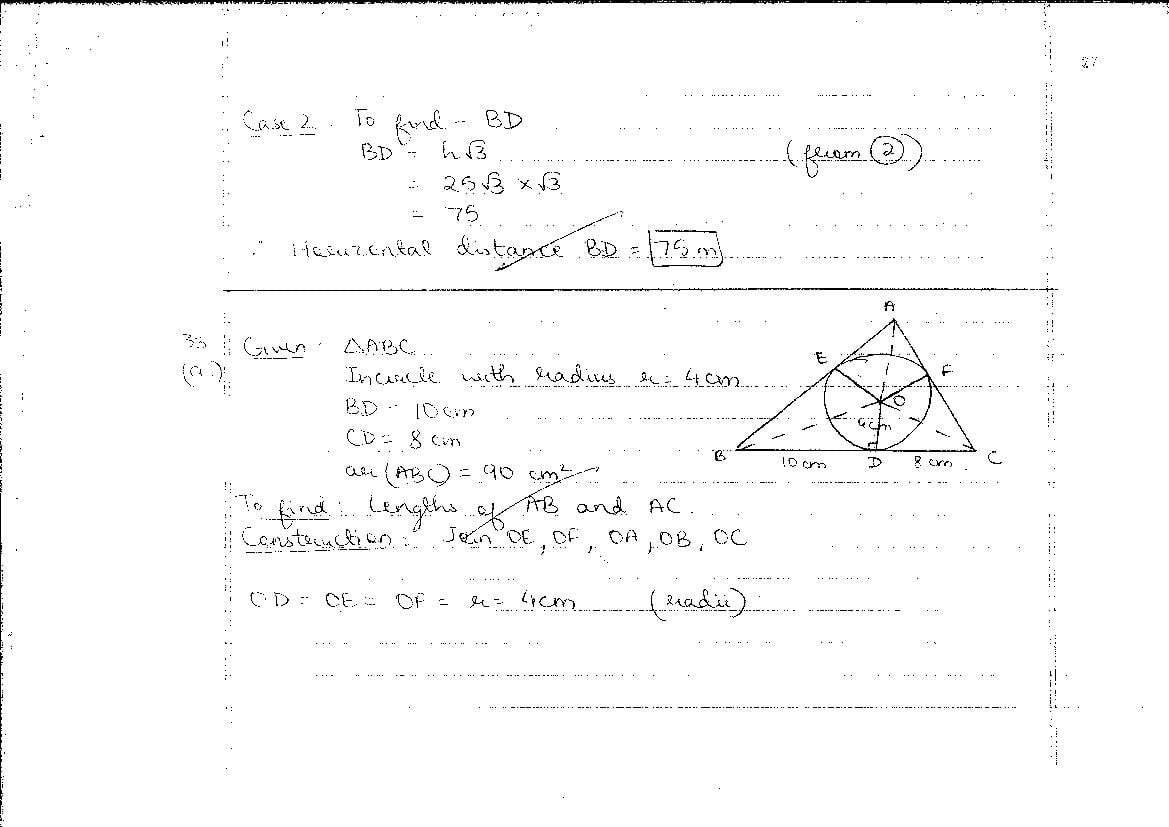 27
Case 2. To find - BD
BD = h√3 (from ②)
= 25√3 × √3
= 75
∴ Horizontal distance BD = 75 m
33 Given - △ABC
(a) Incircle with radius r = 4cm
BD = 10cm
CD = 8 cm
ar(ABC) = 90 cm²
To find: Lengths of AB and AC.
Construction: Join OE, OF, OA, OB, OC
OD = OE = OF = r = 4cm (radii)
A
E
F
O
4cm
B
10 cm
D
8 cm
C